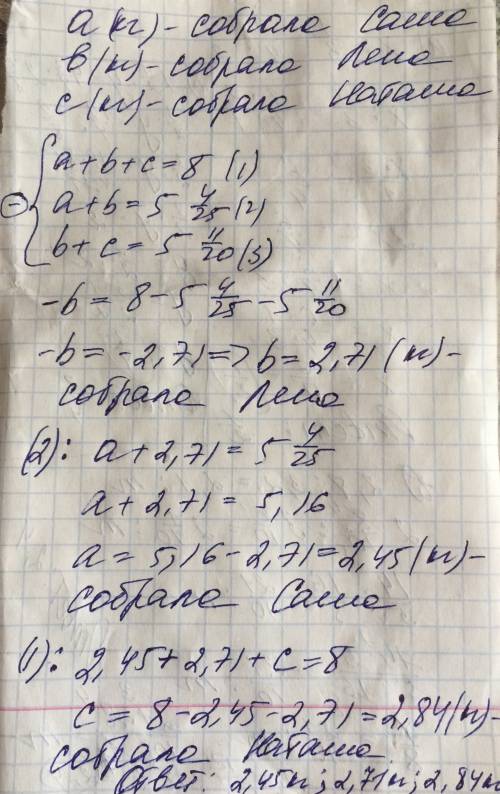 a (кг) - собрала Саша
в (кг) - собрала Лена
с (кг) - собрала Наташа
a + b + c = 8 (1)
a + b = 5 4/25 (2)
b + c = 5 11/20 (3)
-b = 8 - 5 4/25 - 5 11/20
-b = -2,71 => b = 2,71 (кг) -
собрала Лена
(2): a + 2,71 = 5 4/25
a + 2,71 = 5,16
a = 5,16 - 2,71 = 2,45 (кг) -
собрала Саша
(1): 2,45 + 2,71 + c = 8
c = 8 - 2,45 - 2,71 = 2,84 (кг) -
собрала Наташа
Ответ: 2,45кг; 2,71кг; 2,84кг